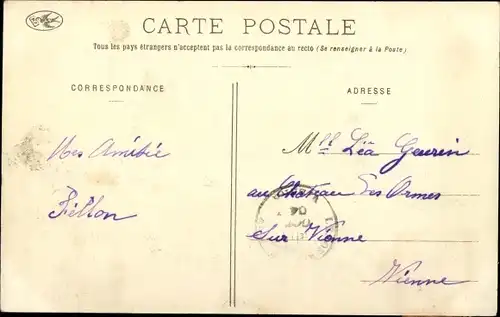 CARTE POSTALE
Tous les pays étrangers n'acceptent pas la correspondance au recto (Se renseigner à la Poste)
CORRESPONDANCE
ADRESSE
Mes Amitiée
Fillon
Mlle Léa Guerin
au Chateau Des Ormes
Sur Vienne
Vienne